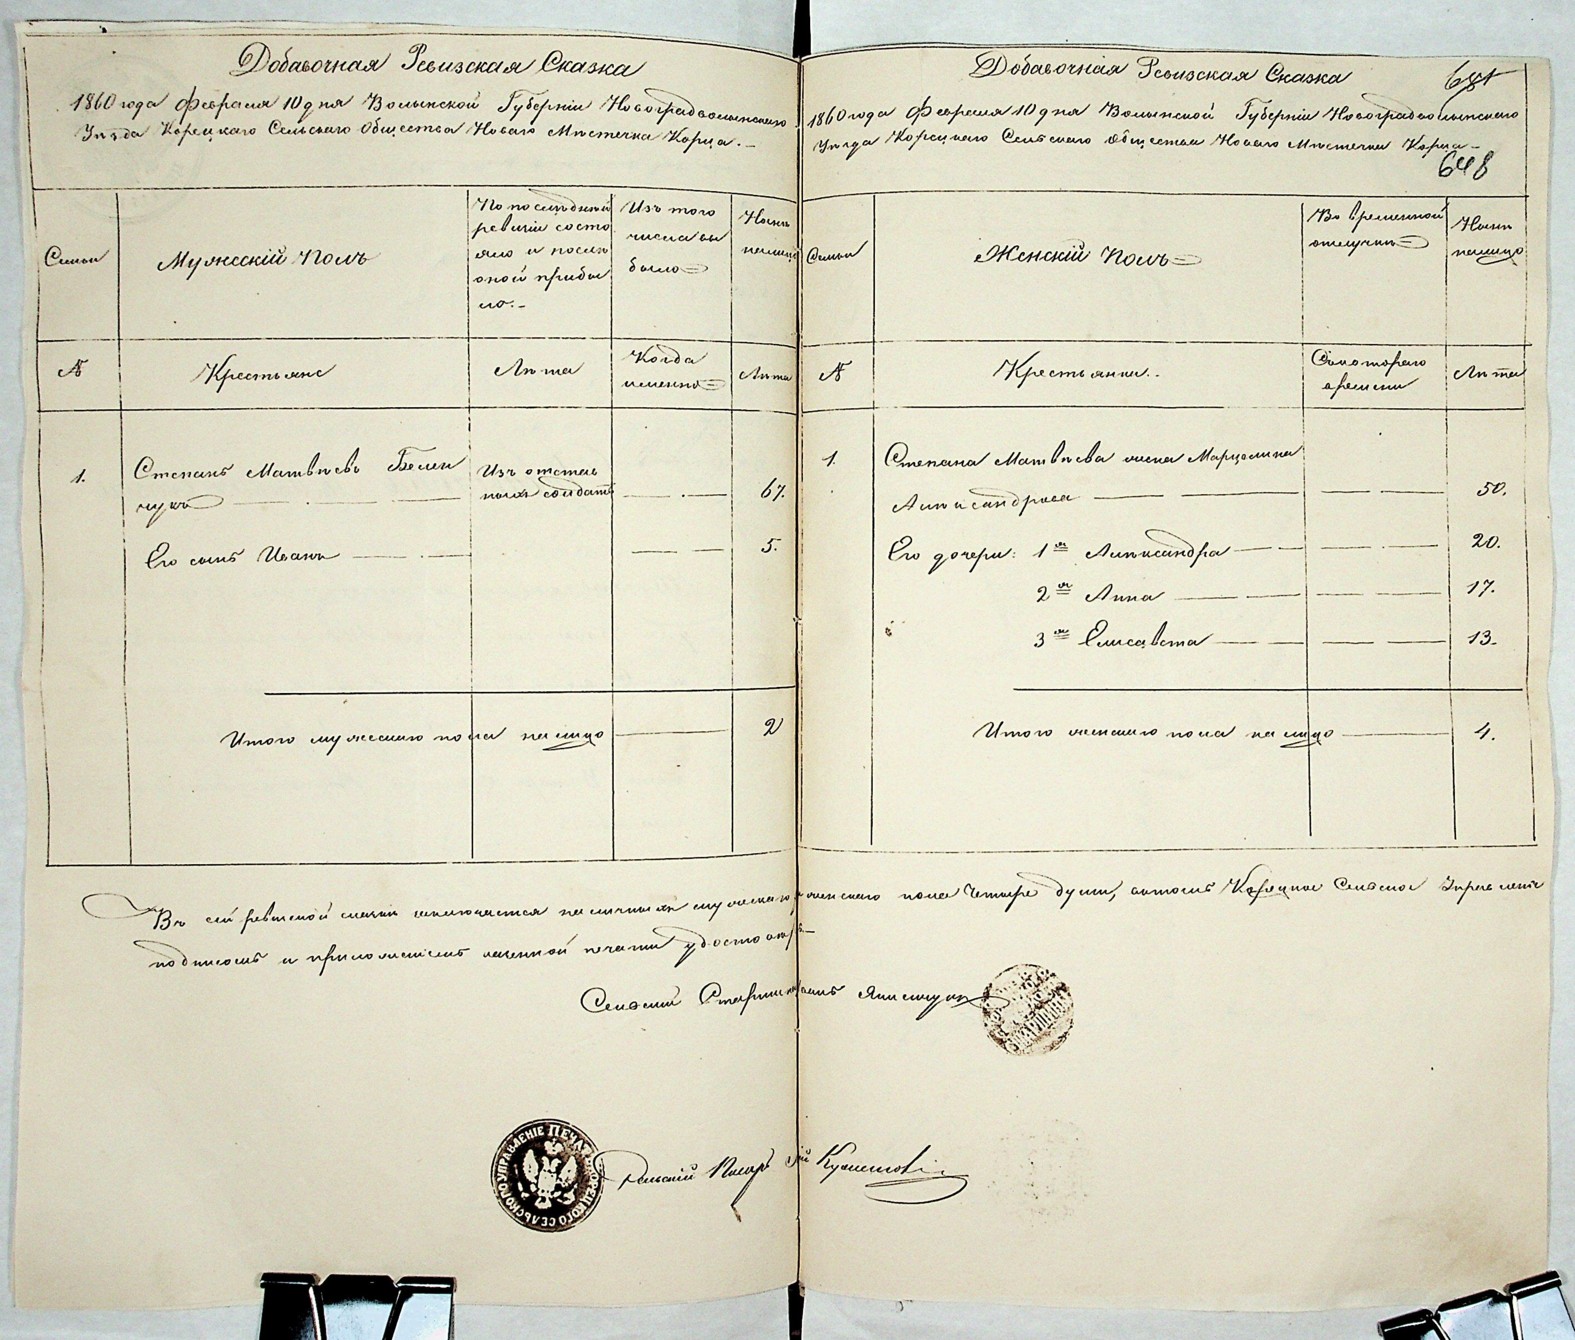 Добавочная Ревизская Сказка
1860 года Февраля 10 дня Волынской Губерніи Новоградволынскаго
Уѣзда Корецкаго Сельскаго Общества Новаго Мѣстечка Корца.
Семьи
Мужескій Полъ
По послѣдней
ревизіи состо
яло и послѣ
оной прибы
ло.
Изъ того
числа вы
было
Нынѣ
налицо
№
Крестьяне
Лѣта
Когда
именно
Лѣта
1.
Степанъ Матвѣевъ Белен
чукъ
Изъ отстав
ныхъ солдатъ
67.
Его сынъ Иванъ
5.
Итого мужескаго пола на лицо
2
Добавочная Ревизская Сказка
681
1860 года Февраля 10 дня Волынской Губерніи Новоградволынскаго
Уѣзда Корецкаго Сельскаго Общества Новаго Мѣстечка Корца
648
Семьи
Женскій Полъ
Во временной
отлучкѣ
Нынѣ
налицо
№
Крестьянки.
Съ котораго
времени
Лѣта
1.
Степана Матвѣева жена Марцелина
Александрова
50.
Его дочери: 1я Александра
20.
2я Анна
17.
3я Елисавета
13.
Итого женскаго пола на лицо
4.
Въ сей ревизской сказкѣ заключается наличныхъ мужескаго женскаго пола Четыре души, въ томъ Корецкое Сельское Управленіе
подписомъ и приложеніемъ казенной печати удостовѣр
Сельскій Старшина
ПЕЧАТЬ КОРЕЦКОГО СЕЛЬСКОГО УПРАВЛЕНІЕ
Сельскій Писарь